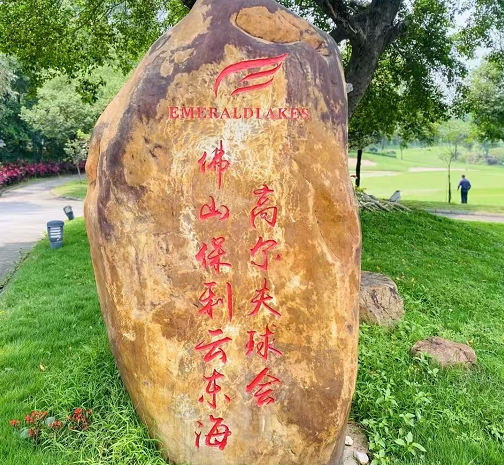 EMERALDLAKES
佛山保利云东海
高尔夫球会